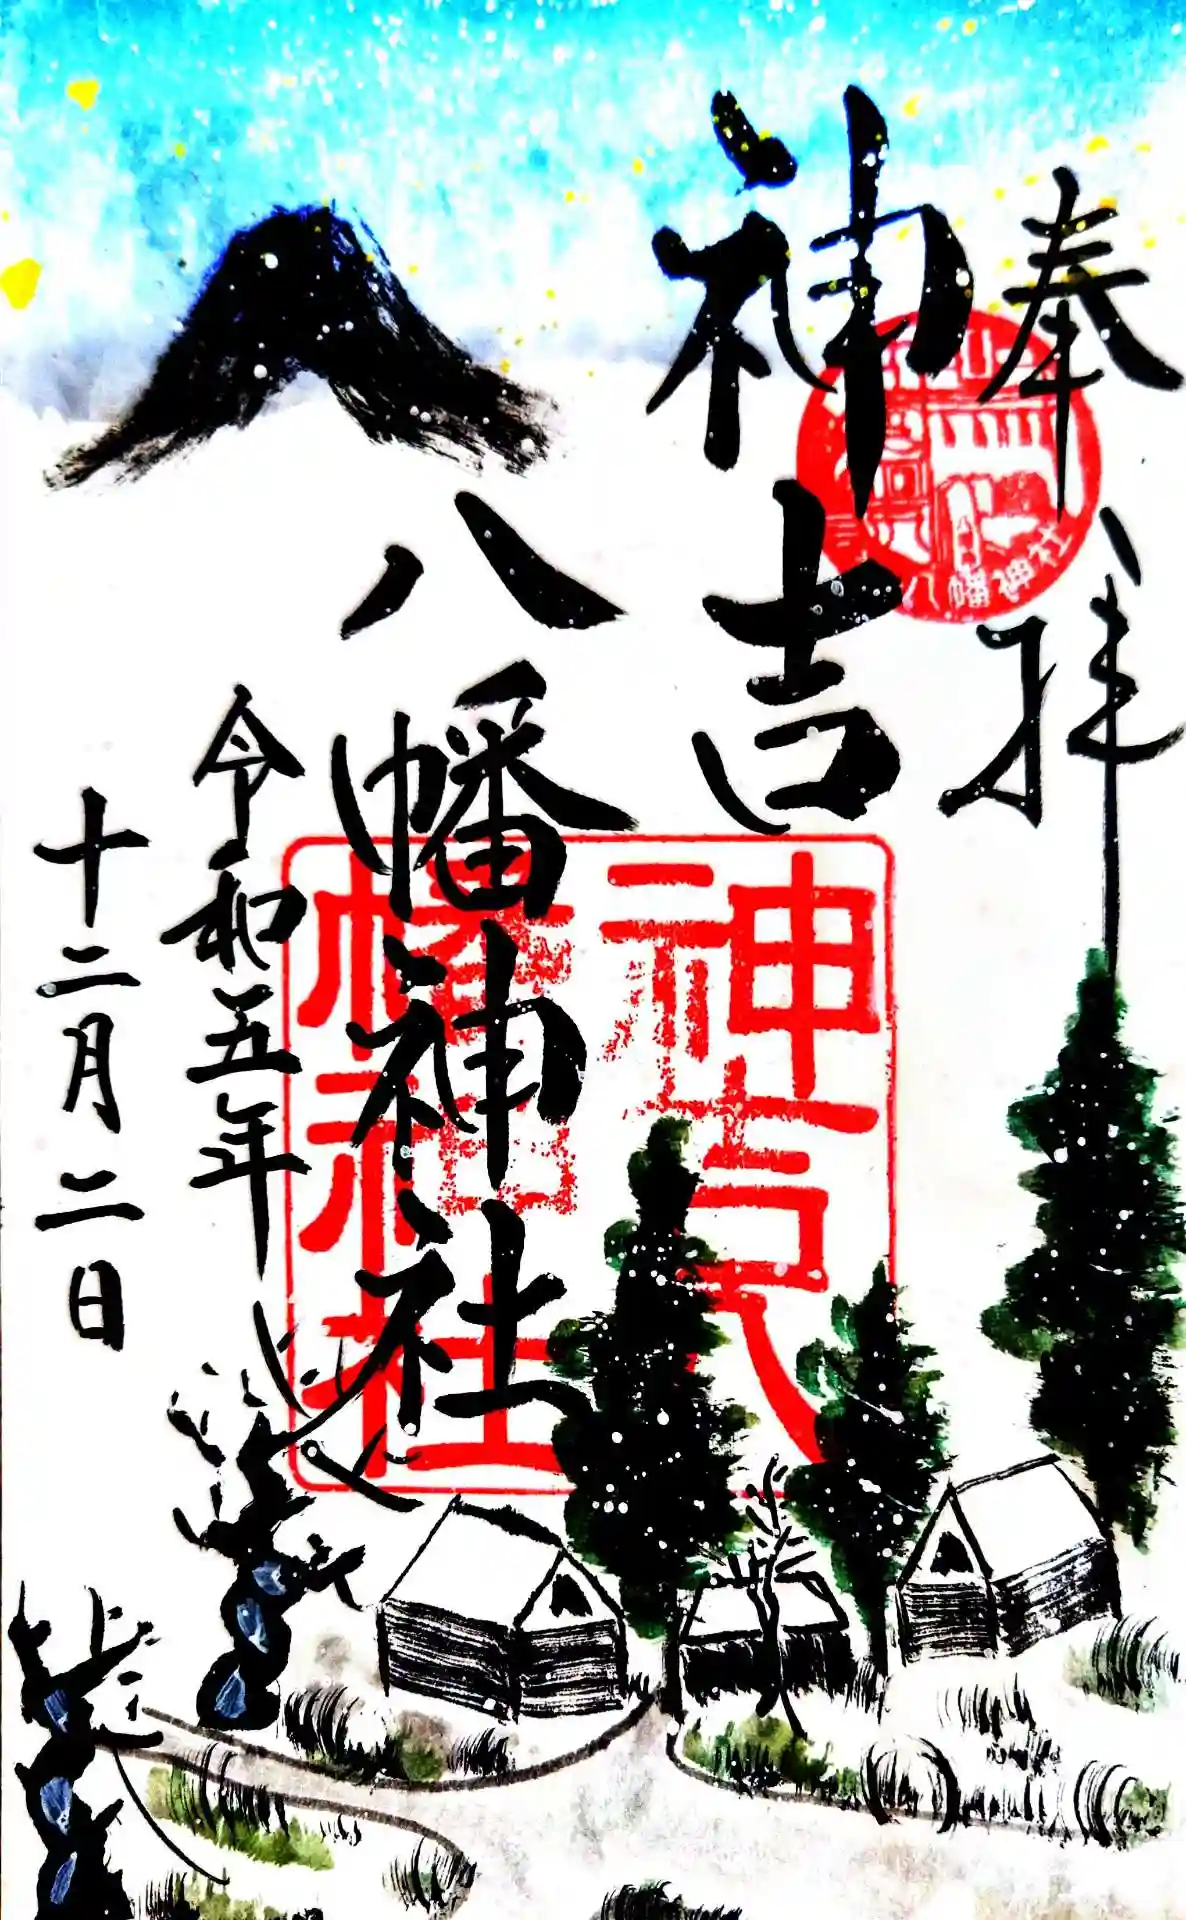 奉拝
神吉
八幡神社
令和五年
十二月二日
八幡神社
神吉八
幡神社